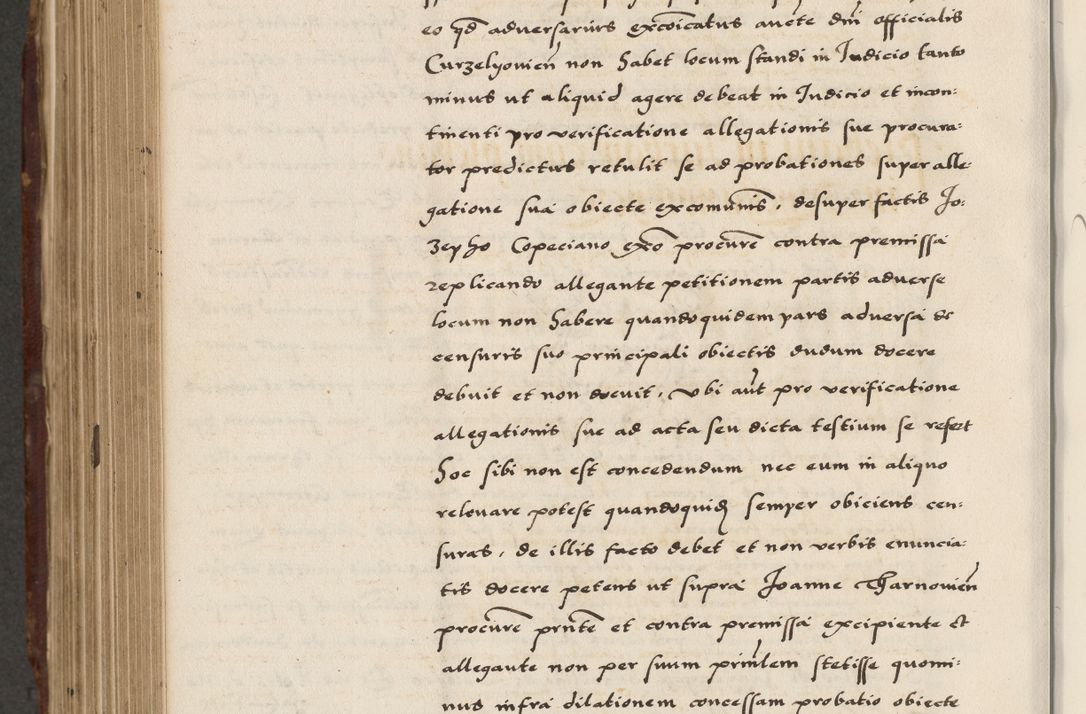 eo qd adversarius excoicatus aucte dni officialis
Curzelyovien non habet locum standi in Iudicio tanto
minus ut aliquid agere debeat in Iudicio et incon:
tinenti pro verificatione allegationis sue procura:
tor predictus retulit se ad probationes super alle:
gatione sua obiecte excomunis, desuper factis Io:
zepho Copeciano exo procure contra premissa
replicando allegante petitionem partis adverse
locum non habere quandoquidem pars adversa de
censuris suo principali obiectis dudum docere
debuit et non docuit, Ubi aut pro verificatione
allegationis sue ad acta seu dicta testium se refert
hoc sibi non est concedendum nec eum in aliquo
relevare potest quandoquid semper obiciens cen:
suras, de illis facto debet et non verbis enuncia:
tis docere petens ut supra Ioanne Tharnovien
procure prnte et contra premissa excipiente et
allegante non per suum prinlem stetisse quomi:
nus infra dilationem concessam probatio obiecte